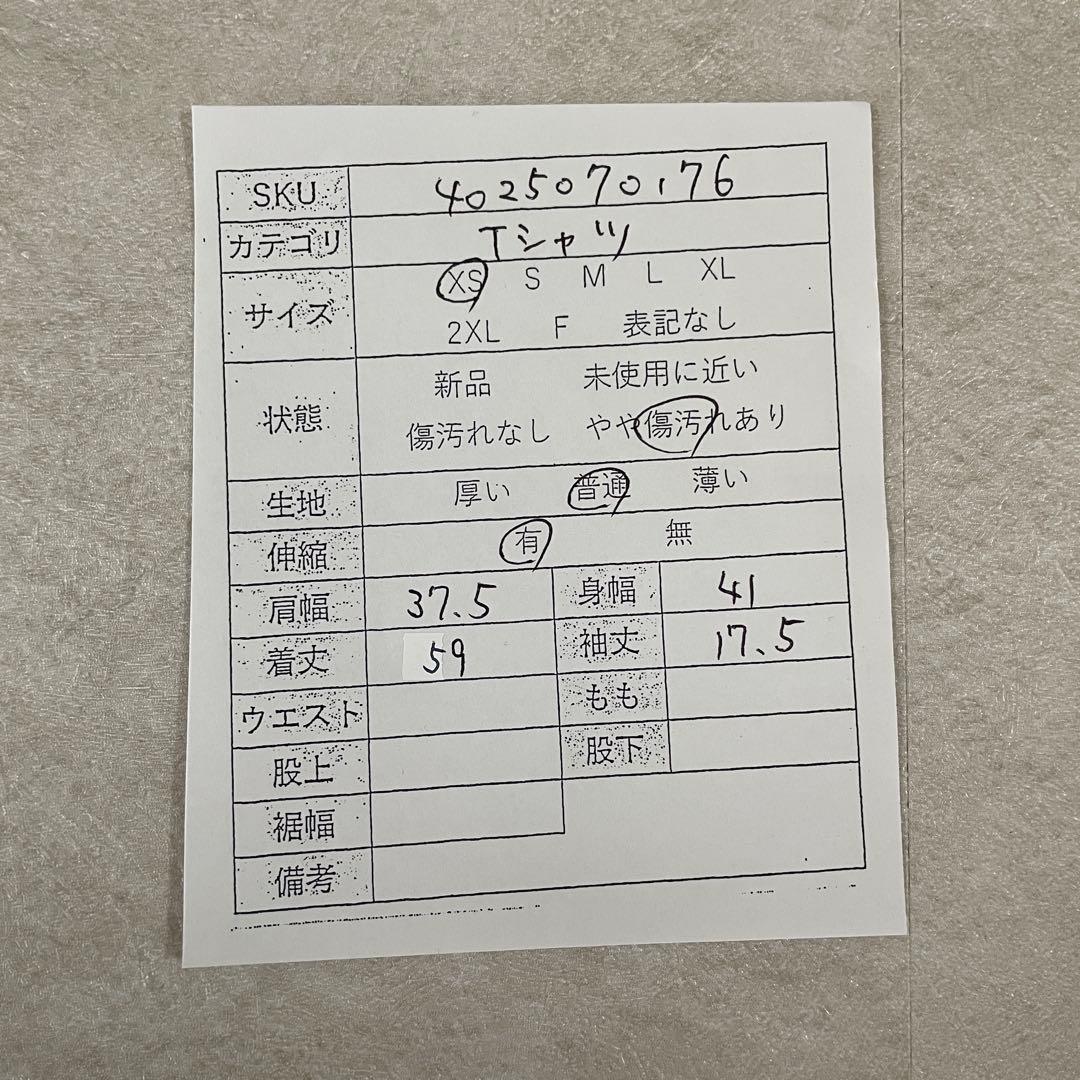 SKU 4025070176
カテゴリ Tシャツ
サイズ XS S M L XL
2XL F 表記なし
状態 新品 未使用に近い
傷汚れなし やや傷汚れあり
生地 厚い 普通 薄い
伸縮 有 無
肩幅 37.5 身幅 41
着丈 59 袖丈 17.5
ウエスト もも
股上 股下
裾幅
備考